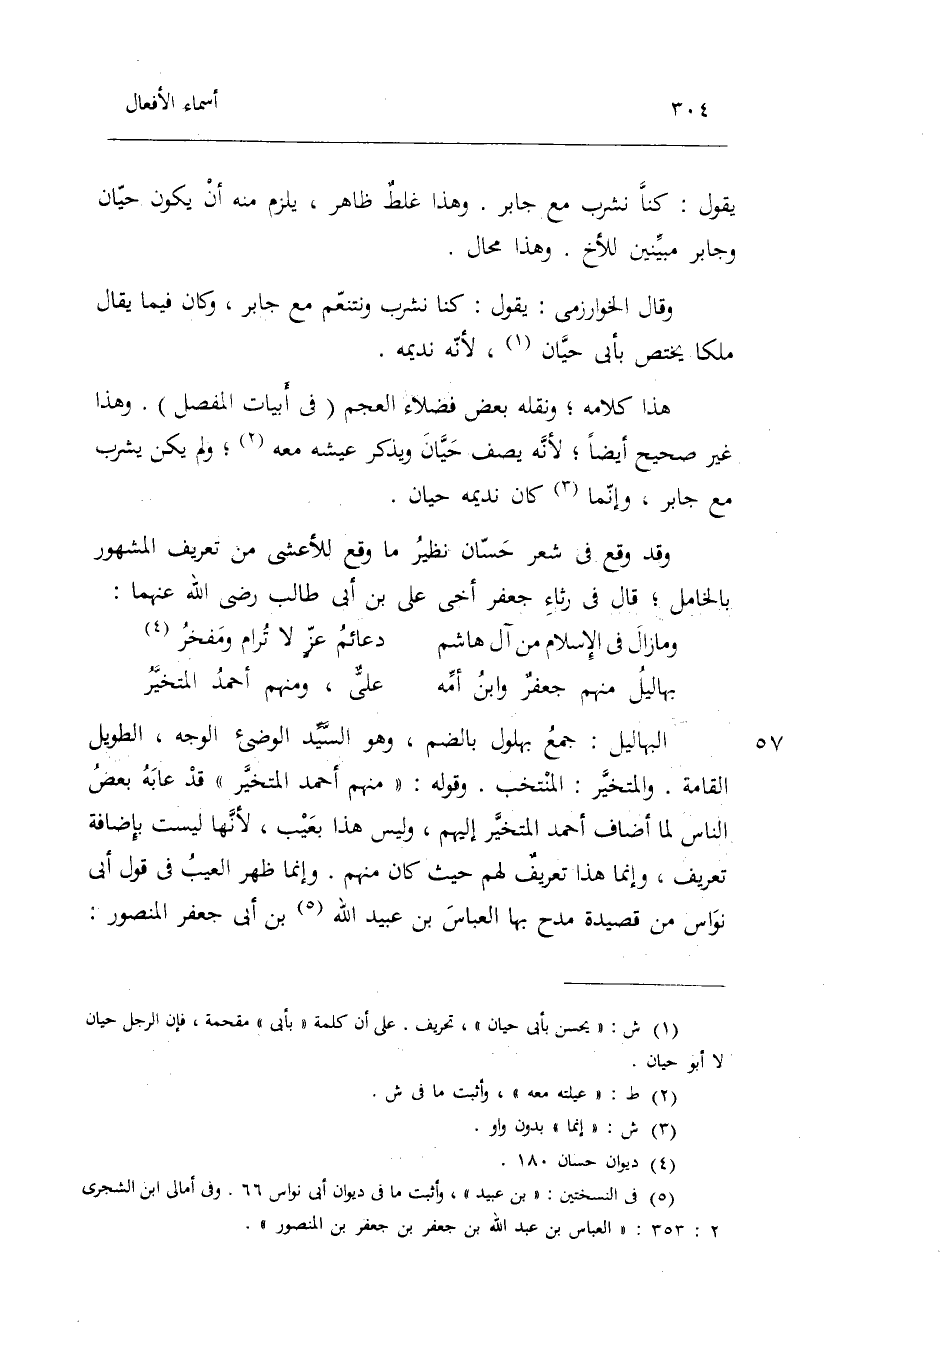 ٣٠٤ أسماء الأفعال
يقول : كنَّا نشرب مع جابر . وهذا غلطٌ ظاهر ، يلزم منه أنْ يكون حيّان
وجابر مبيِّنين للأخ . وهذا محال .
وقال الخوارزمى : يقول : كنا نشرب ونتنعّم مع جابر ، وكان فيما يقال
ملكا يختص بأبى حيَّان (١) ، لأنّه نديمه .
هذا كلامه ؛ ونقله بعض فضلاء العجم ( فى أَبيات المفصل ) . وهذا
غير صحيح أيضاً ؛ لأنَّه يصف حَيَّانَ ويذكر عيشه معه (٢) ؛ ولم يكن يشرب
مع جابر ، وإنّما (٣) كان نديمه حيان .
وقد وقع فى شعر حَسّان نظيرُ ما وقع للأعشى من تعريف المشهور
بالخامل ؛ قال فى رثاءِ جعفر أخى على بن أبى طالب رضى الله عنهما :
ومازالَ فى الإِسلام من آل هاشم دعائمُ عزّ لا تُرام ومَفخرُ (٤)
بهاليلُ منهم جعفرٌ وابنُ أمِّه علىٌّ ، ومنهم أحمدُ المتخيَّرُ
٥٧ البهاليل : جمعُ بهلول بالضم ، وهو السَّيِّد الوضىء الوجه ، الطويل
القامة . والمتخيَّر : المنْتخب . وقوله : « منهم أحمد المتخيَّر » قدْ عابَهُ بعضُ
الناس لما أضاف أحمد المتخيَّر إليهم ، وليس هذا بعَيْب ، لأنَّها ليست بإِضافة
تعريف ، وإنما هذا تعريفٌ لهم حيث كان منهم . وإنما ظهر العيبُ فى قول أبى
نوَاس من قصيدة مدح بها العباسَ بن عبيد الله (٥) بن أبى جعفر المنصور :
(١) ش : « يحسن بأبى حيان » ، تحريف . على أن كلمة « بأبى » مقحمة ، فإن الرجل حيان
لا أبو حيان .
(٢) ط : « عيلته معه » ، وأثبت ما فى ش .
(٣) ش : « إنما » بدون واو .
(٤) ديوان حسان ١٨٠ .
(٥) فى النسختين : « بن عبيد » ، وأثبت ما فى ديوان أبى نواس ٦٦ . وفى أمالى ابن الشجرى
٢ : ٣٥٣ : « العباس بن عبد الله بن جعفر بن جعفر بن المنصور » .